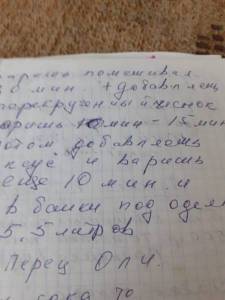 помешивая
30 мин + добавляешь
перекрученный чеснок
варишь 10 мин - 15 мин
потом добавляешь
уксус и варишь
еще 10 мин. и
в банки под одея
5,5 литров
Перец Оли.
сока то